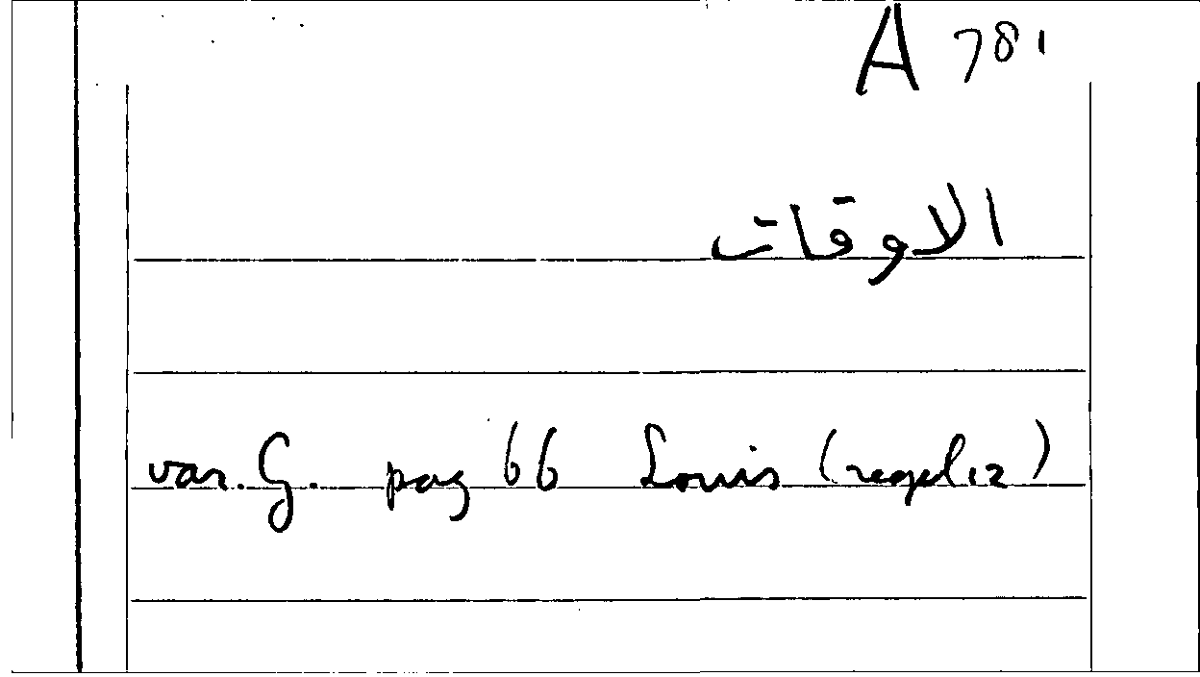 A 781
الاوقات
var. G. pag 66 Louis (regaliz)